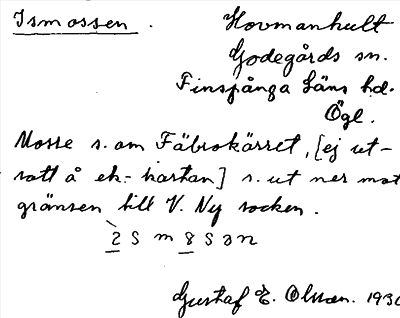 Ismossen. Hovmanhult
Godegårds sn.
Finspånga Läns hd.
Ögl.
Mosse s. om Fäbrokärret, [ej ut-
satt å ek-kartan] s. ut ner mot
gränsen till V. Ny socken.
Gustaf E. Olsson. 1930